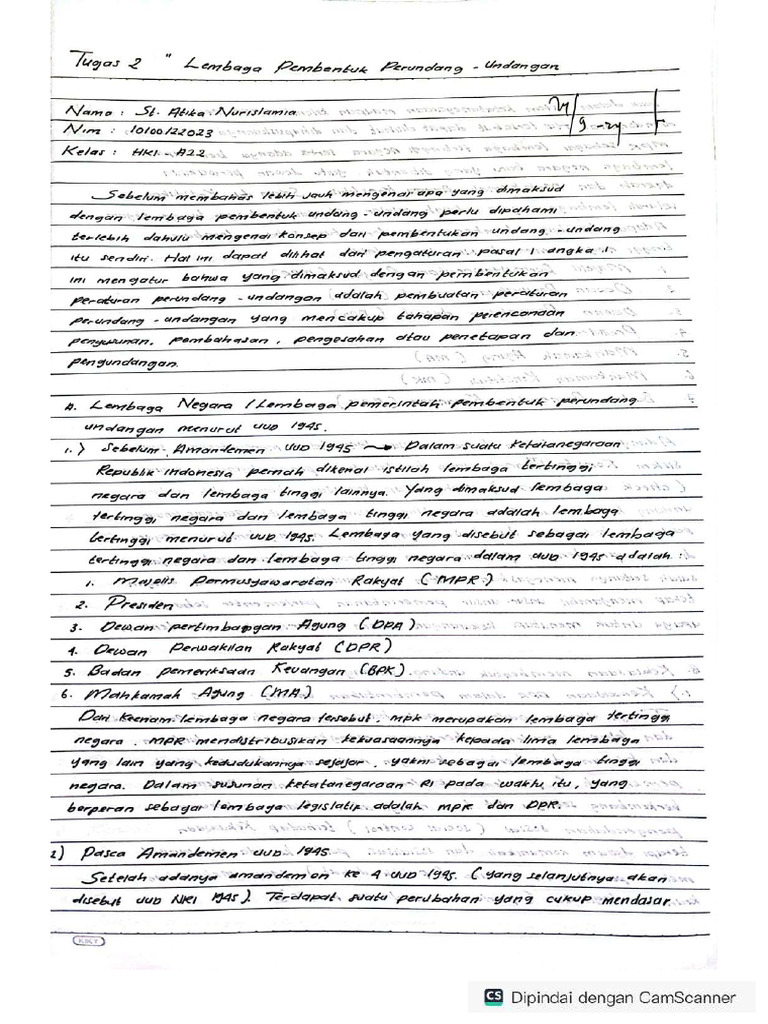 Tugas 2 " Lembaga Pembentuk Perundang - undangan
Nama : St. Atika Nurislamia
Nim : 10100122023
Kelas : HKI - A22
24/9-24
Sebelum membahas lebih jauh mengenai apa yang dimaksud
dengan lembaga pembentuk undang-undang perlu dipahami
terlebih dahulu mengenai konsep dari pembentukan undang-undang
itu sendiri. Hal ini dapat dilihat dari pengaturan pasal 1 angka 1.
ini mengatur bahwa yang dimaksud dengan pembentukan
peraturan perundang-undangan adalah pembuatan peraturan
perundang-undangan yang mencakup tahapan perencanaan
penyusunan, pembahasan, pengesahan atau penetapan dan
pengundangan.
A. Lembaga Negara / Lembaga pemerintah pembentuk perundang
undangan menurut UUD 1945.
1.) Sebelum Amandemen UUD 1945 → Dalam suatu Ketatanegaraan
Republik Indonesia pernah dikenal istilah lembaga tertinggi
negara dan lembaga tinggi lainnya. Yang dimaksud lembaga
tertinggi negara dan lembaga tinggi negara adalah lembaga
tertinggi menurut UUD 1945. Lembaga yang disebut sebagai lembaga
tertinggi negara dan lembaga tinggi negara dalam UUD 1945 adalah :
1. Majelis Permusyawaratan Rakyat (MPR)
2. Presiden
3. Dewan pertimbangan Agung (DPA)
4. Dewan Perwakilan Rakyat (DPR)
5. Badan pemeriksaan Keuangan (BPK).
6. Mahkamah Agung (MA)
Dari Keenam lembaga negara tersebut, MPR merupakan lembaga tertinggi
negara. MPR mendistribusikan kekuasaannya kepada lima lembaga
yang lain yang kedudukannya sejajar, yakni sebagai lembaga tinggi
negara. Dalam susunan ketatanegaraan RI pada waktu itu, yang
berperan sebagai lembaga legislatif adalah MPR dan DPR.
2) Pasca Amandemen UUD 1945
Setelah adanya amandemen ke 4 UUD 1945. (yang selanjutnya akan
disebut UUD NRI 1945). Terdapat suatu perubahan yang cukup mendasar
KIKY
CS Dipindai dengan CamScanner